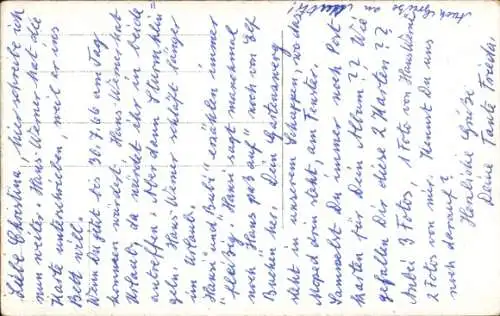 Liebe Christina, hier schreibe ich
nun weiter. Hans Werner hat die
Karte unterschrieben, weil er ins
Bett will.
Wenn Du jetzt bis 30.7.66 am Tag
kommen würdest. Hans Werner hat
Urlaub, da würdet ihr ihn beide
antreffen. Aber dann
Hans-Werner schläft länger
im Urlaub.
"Hansi und Bubi" erzählen immer
fleißig. "Hansi" sagt manchmal
noch "Hans paß auf" noch von Elf
Buchen her. Dein Gartenzwerg
steht in unserem Schuppen, wo das
Moped drin steht, am Fenster.
Sammelst Du immer noch Post-
karten für Dein Album?? Wie
gefallen Dir diese 2 Karten??
Anbei 3 Fotos, 1 Foto von Hans Werner
2 Fotos von mir. Kennst Du uns
noch darauf?
Herzliche Grüße
Deine Tante Frieda.
Auch Grüße an Mutti!